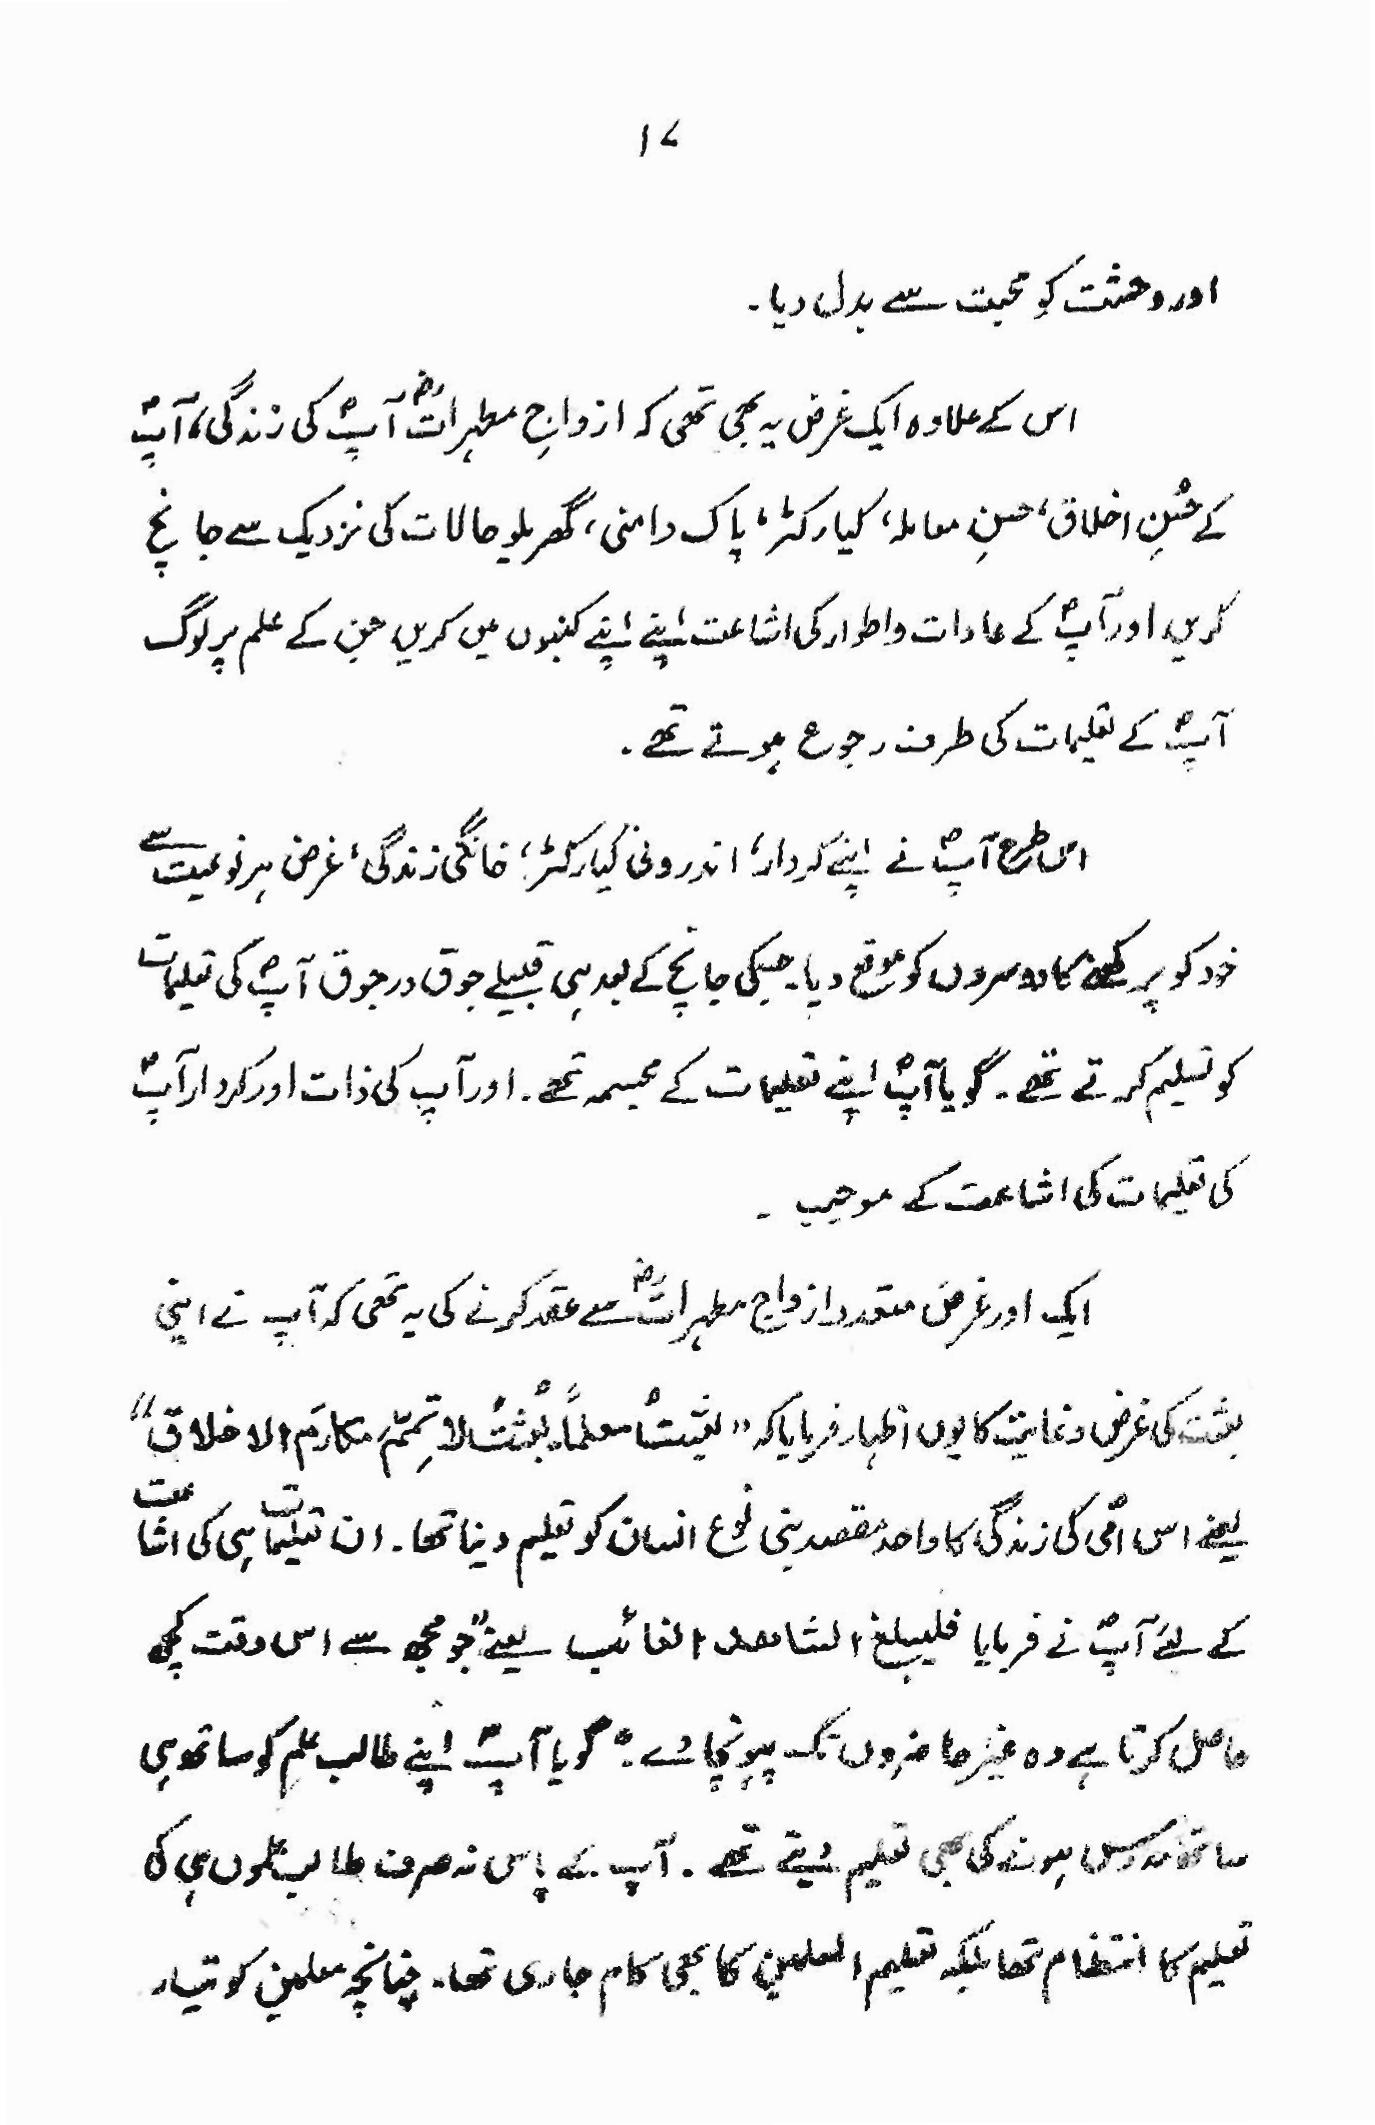 ۱۷
اور وحشت کو محبت سے بدل دیا۔
اس کے علاوہ ایک غرض یہ بھی تھی کہ ازواجِ مطہراتؓ آپؐ کی زندگی، آپؐ
کے حُسنِ اخلاق، حسنِ معاملہ، کیارکٹر، پاک دامنی، گھریلو حالات کی نزدیک سے جانچ
کریں اور آپؐ کے عادات و اطوار کی اشاعت اپنے اپنے کنبوں میں کریں جن کے علم پر لوگ
آپؐ کے تعلیمات کی طرف رجوع ہوتے تھے۔
اس طرح آپؐ نے اپنے کردار، اندرونی کیارکٹر، خانگی زندگی، غرض ہر نوعیت سے
خود کو پرکھنے کا دوسروں کو موقع دیا۔ جسکی جانچ کے بعد ہی قبیلے جوق در جوق آپؐ کی تعلیمات
کو تسلیم کرتے تھے۔ گویا آپؐ اپنے تعلیمات کے مجسمہ تھے۔ اور آپ کی ذات اور کردار آپؐ
کی تعلیمات کی اشاعت کے موجب ۔
ایک اور غرض متعدد ازواج مطہراتؓ سے عقد کرنے کی یہ تھی کہ آپ نے اپنی
بعثت کی غرض و غایت کا یوں اظہار فرمایا کہ "بعثتُ معلماً، بُعثتُ لاتِمّمَ مکارَم الاخلاق"
یعنے اس امّی کی زندگی کا واحد مقصد بنی نوع انسان کو تعلیم دینا تھا۔ ان تعلیمات ہی کی اشاعت
کے لئے آپؐ نے فرمایا فلیبلغ الشاهد الغائب یعنے "جو مجھ سے اس وقت کچھ
حاصل کرتا ہے وہ غیر حاضروں تک پہونچا دے۔" گویا آپؐ اپنے طالب علم کو ساتھ ہی
ساتھ مدرس ہونے کی بھی تعلیم دیتے تھے۔ آپ کے پاس نہ صرف طالب علموں ہی کی
تعلیم کا انتظام تھا بلکہ تعلیم المعلمین کا بھی کام جاری تھا۔ چنانچہ معلمین کو تیار